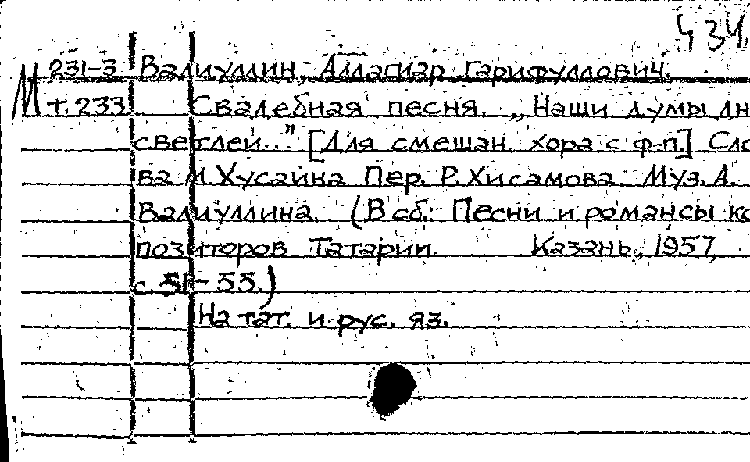 434.
231-3 Валиуллин, Аллагиар Гарифуллович.
М т. 233 Свадебная песня. „Наши думы дн
светлей..." [Для смешан. хора с ф-п.] Сло
ва М. Хусаина Пер. Р. Хисамова. Муз. А.
Валиуллина. (В сб.: Песни и романсы ко
позиторов Татарии. Казань, 1957,
с. 51-55.)
На тат. и рус. яз.